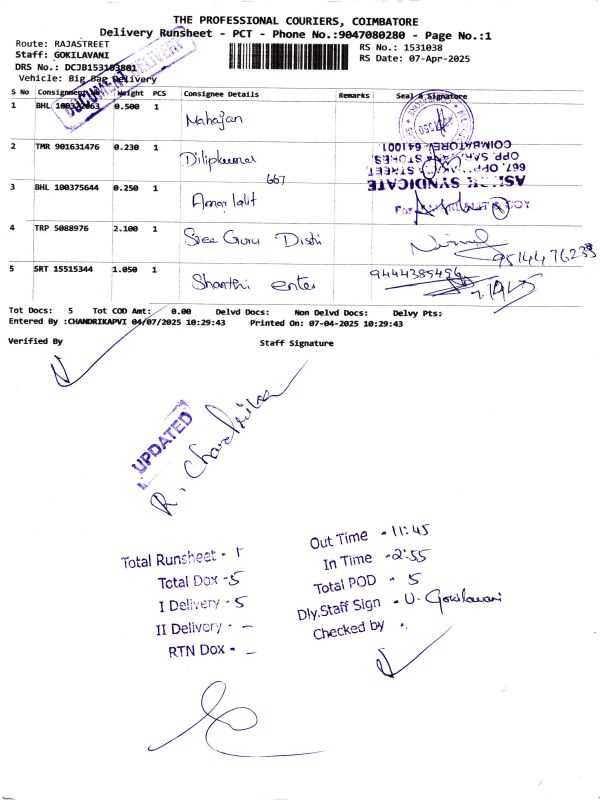 THE PROFESSIONAL COURIERS, COIMBATORE
Delivery Runsheet - PCT - Phone No.:9047080280 - Page No.:1
Route: RAJASTREET
Staff: GOKILAVANI
DRS No.: DCJB153103801
Vehicle: Big Bag Delivery
RS No.: 1531038
RS Date: 07-Apr-2025
DOCUMENT DELIVERY
S No Consignment Weight PCS Consignee Details Remarks Seal & Signature
1 BHL 0.500 1 Mahajan
2 TMR 901631476 0.230 1 Dilipkumar
667
3 BHL 100375644 0.250 1 Amar lalit
4 TRP 5088976 2.100 1 Sree Guru Distri 9514476233
5 SRT 15515344 1.050 1 Shanthi enter 9444385496
COIMBATORE 641001
667, OPP. STREET,
SYNDICATE
Tot Docs: 5 Tot COD Amt: 0.00 Delvd Docs: Non Delvd Docs: Delvy Pts:
Entered By :CHANDRIKAPVI 04/07/2025 10:29:43 Printed On: 07-04-2025 10:29:43
Verified By Staff Signature
UPDATED
R. Chandrika
Total Runsheet - 1
Total Dox - 5
I Delivery - 5
II Delivery - -
RTN Dox - -
Out Time - 11:45
In Time - 2:55
Total POD - 5
Dly.Staff Sign - U. Gokilavani
Checked by -